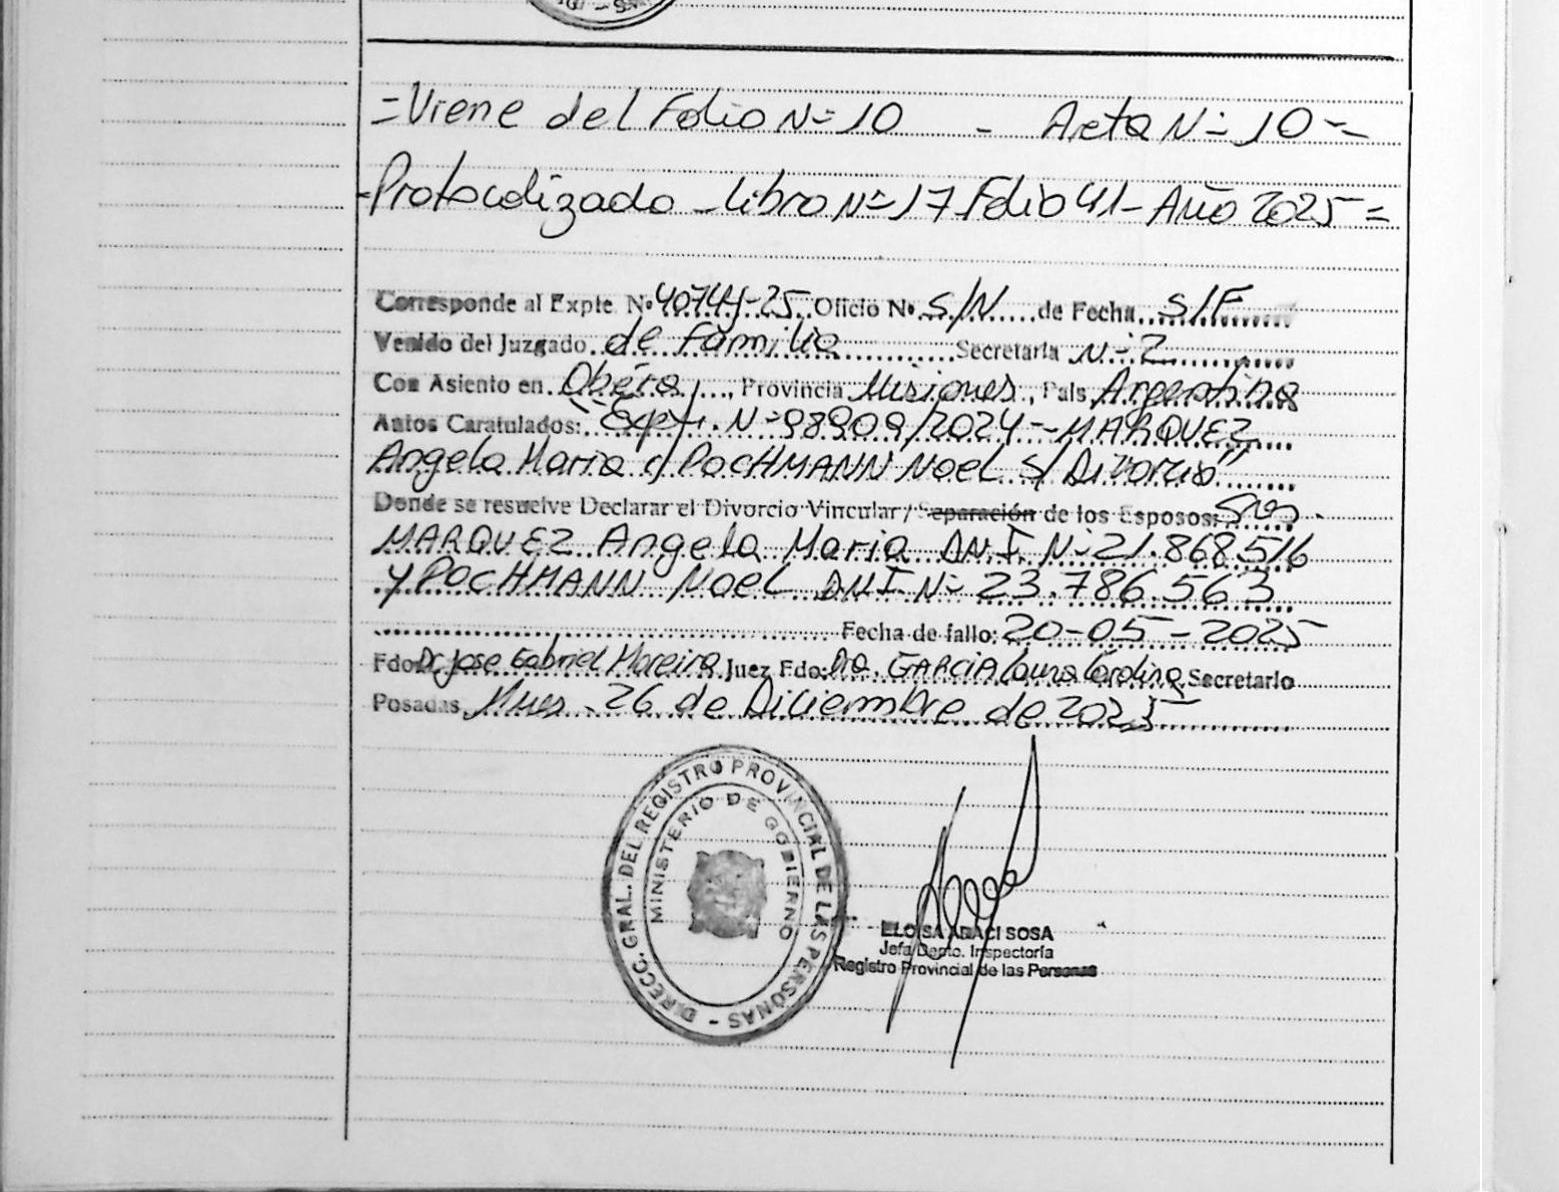 =Viene del Folio Nº 10 - Acta Nº 10=
-Protocolizado - Libro Nº 17 Folio 41 - Año 2025=
Corresponde al Expte. Nº Oficio Nº S/N de Fecha S/F
Venido del Juzgado de Familia Secretaría Nº 2
Con Asiento en Oberá, Provincia Misiones, País Argentina
Autos Caratulados: "Expte. Nº 98909/2024 - MARQUEZ
Angela Maria c/ POCHMANN Noel S/ Divorcio"
Donde se resuelve Declarar el Divorcio Vincular / Separación de los Esposos: Sres.
MARQUEZ Angela Maria DNI. Nº 21.868.516
y POCHMANN Noel DNI. Nº 23.786.563
Fecha de fallo: 20-05-2025
Fdo: Dr Jose Gabriel Moreira Juez Fdo: Dra. GARCIA Laura Carolina Secretario
Posadas, Mnes. 26 de Diciembre de 2025
DIRECC. GRAL. DEL REGISTRO PROVINCIAL DE LAS PERSONAS -
MINISTERIO DE GOBIERNO
ELOISA ARACI SOSA
Jefa Depto. Inspectoría
Registro Provincial de las Personas